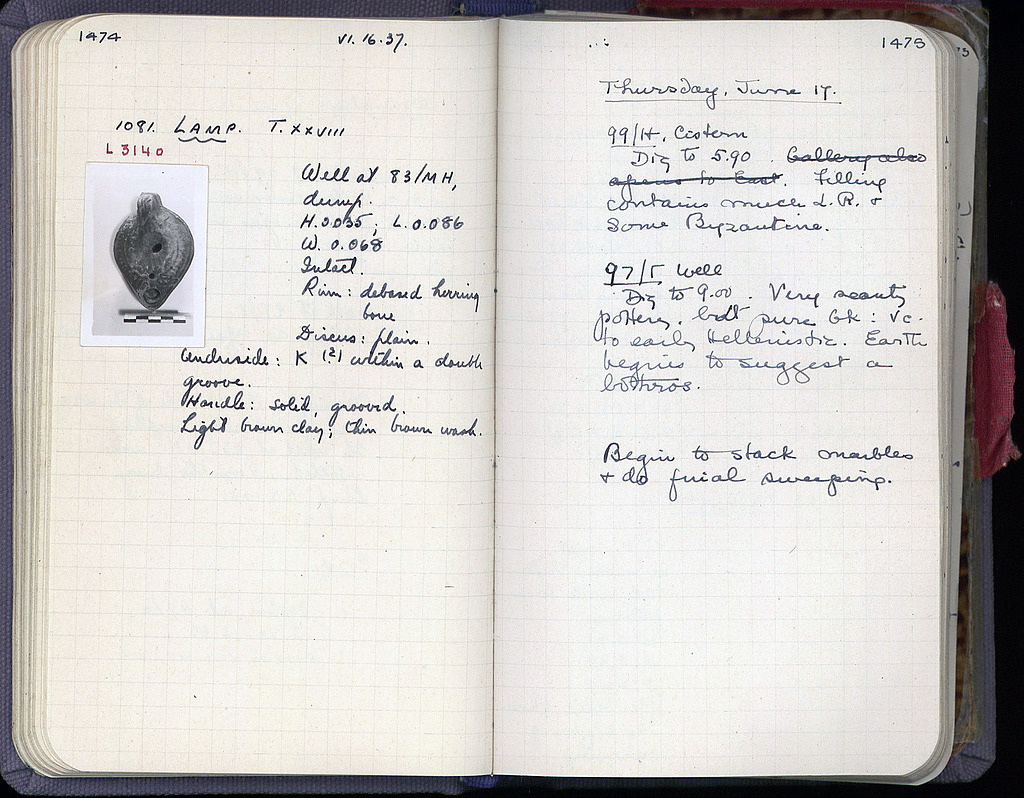 1474
VI. 16.37.
1081. LAMP. T. XXVIII
L 3140
Well at 83/MH,
dump.
H. 0.035; L. 0.086
W. 0.068
Intact.
Rim: debased herring
bone
Discus: plain.
Underside: K (?) within a double
groove.
Handle: solid, grooved.
Light brown clay; thin brown wash.
1475
Thursday, June 17.
99/H. Cistern
Dig to 5.90. Gallery also
opens to East. Filling
contains much L.R. +
some Byzantine.
97/Γ Well
Dig to 9.00. Very scanty
pottery, but pure Gk: Vc.
to early Hellenistic. Earth
begins to suggest a
bothros.
Begin to stack marbles
+ do final sweeping.